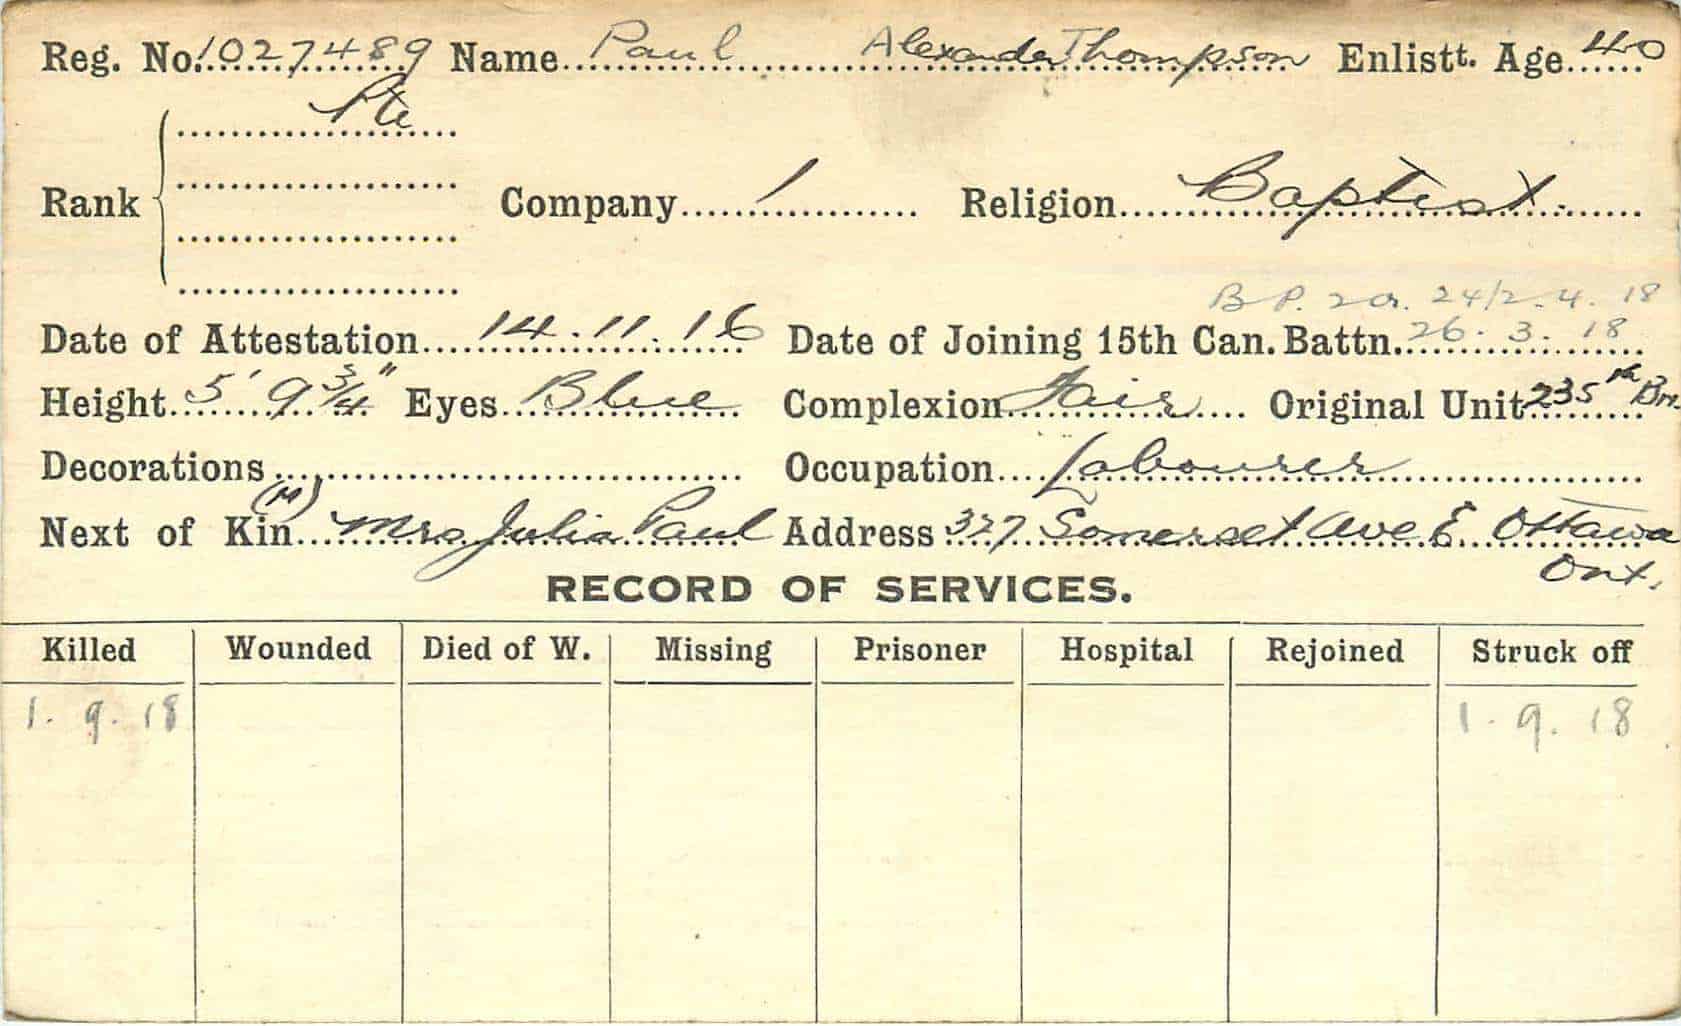 Reg. No. 1027489 Name Paul Alexander Thompson Enlistt. Age 40
Pte
Rank Company 1 Religion Baptist
24/2.4.18
Date of Attestation 14.11.16 Date of Joining 15th Can. Battn. 26.3.18
Height 5' 9 3/4" Eyes Blue Complexion Fair Original Unit 235th Bn.
Decorations Occupation Labourer
(M)
Next of Kin Mrs Julia Paul Address 327 Somerset Ave E. Ottawa
Ont.
RECORD OF SERVICES.
Killed Wounded Died of W. Missing Prisoner Hospital Rejoined Struck off
1. 9. 18 1. 9. 18